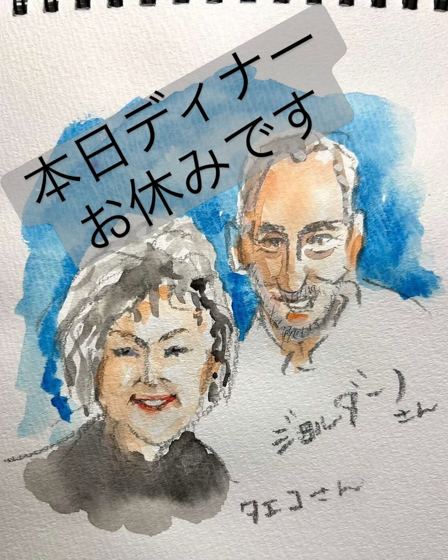 本日ディナー
お休みです
ジョルダーノ
さん
クエコさん